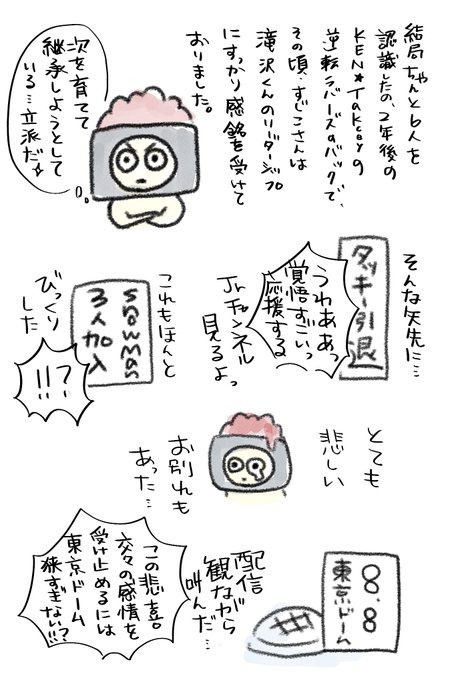 結局ちゃんと6人を
認識したの、2年後の
KEN☆Takeyの
逆転ラバーズのバックで、
その頃、すじこさんは
滝沢くんのリーダーシップ
にすっかり感銘を受けて
おりました。
次を育てて
継承しようとして
いる…立派だ☆
そんな矢先に…
タッキー引退
うわああっ
覚悟すごいっ
応援する
Jr.チャンネル
見るよっ
これもほんと
びっくり
した
snowman
3人加入
!!?
とても
悲しい
お別れも
あった…
8.8
東京ドーム
配信
観ながら
叫んだ…
この悲喜
交々の感情を
受け止めるには
東京ドーム
狭すぎない!!?